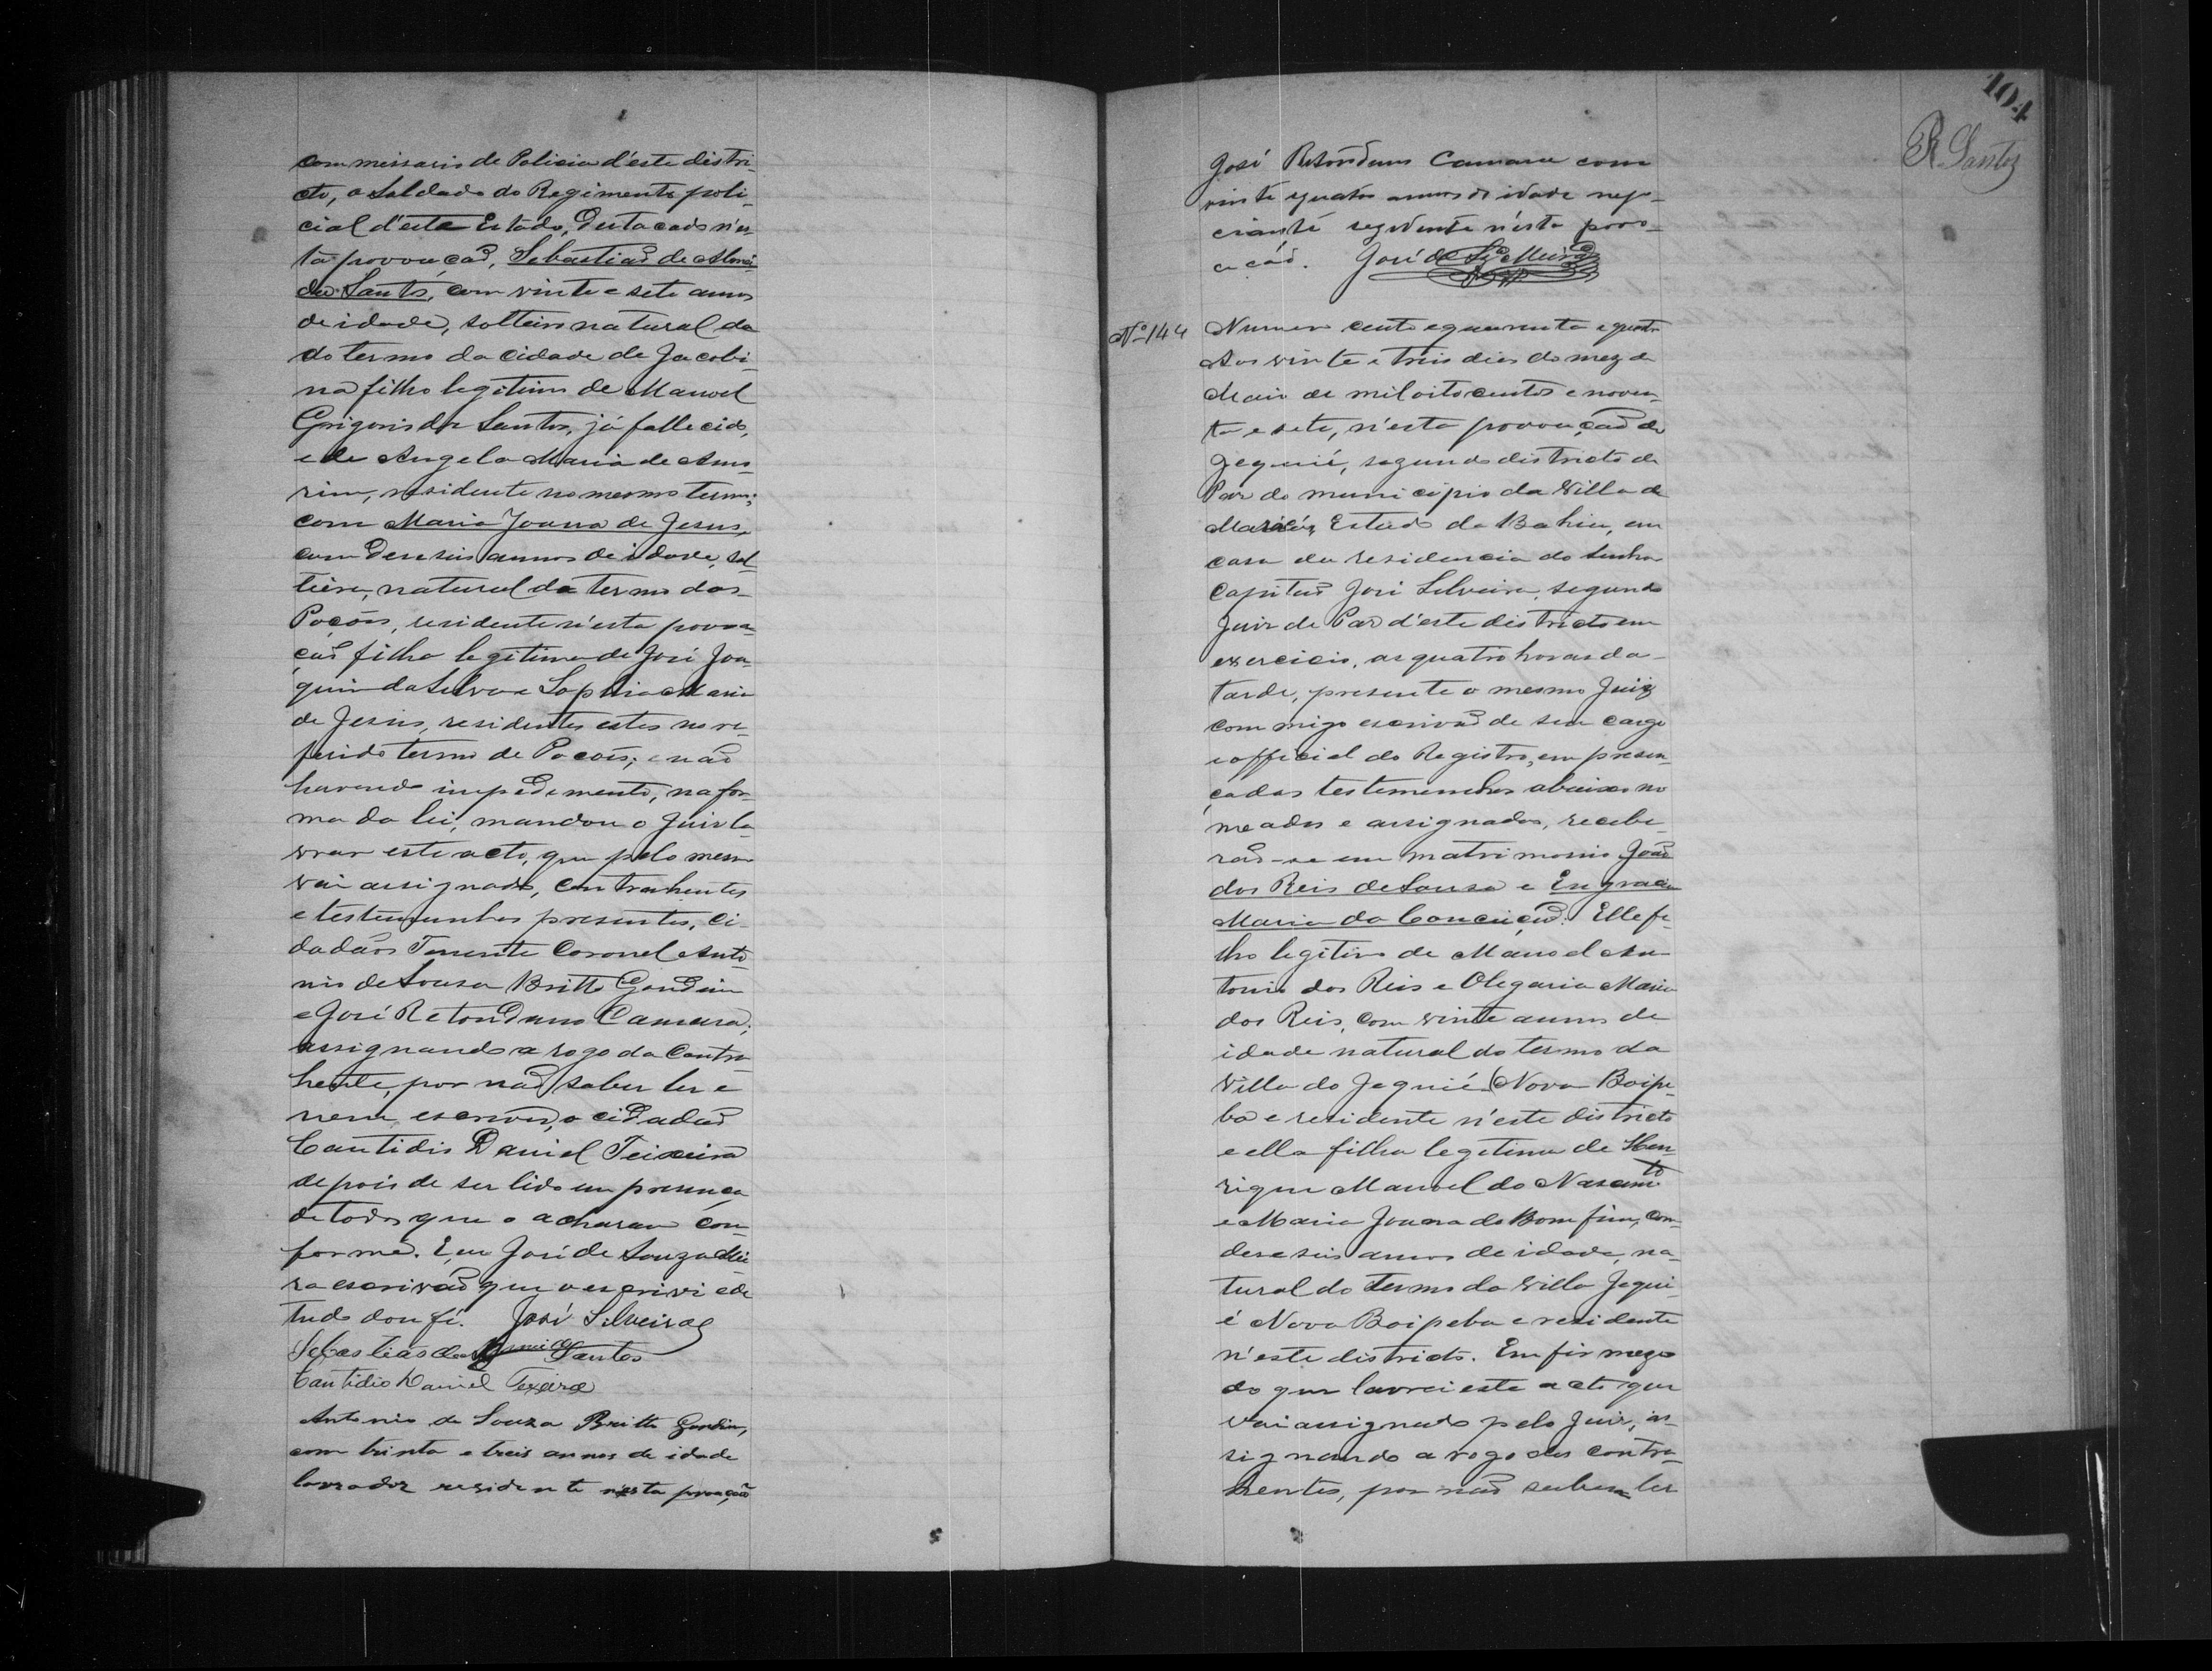 commissario de Policia d'este distri-
cto, o Soldado do Regimento poli-
cial d'este Estado, Destacado n'es-
ta provoação, Sebastião de
dos Santos, com vinte e sete annos
de idade, solteiro natural da
do termo da cidade de Jacobi-
na filho legitimo de Manoel
Grigorio dos Santos, já fallecido,
e de Angela Maria de Amo-
rim, residente no mesmo termo;
com Maria Joanna de Jesus,
com Deseseis annos de idade, sol-
teira, natural do termo dos
Poções, residente n'esta provoa-
ção filha legitima de José Joa-
quim da Silva e Sophia Maria
de Jesus, residentes estes no re-
ferido termo de Poções; e não
havendo impedimento, na for-
ma da lei, mandou o Juiz la-
vrar este acto, que pelo mesmo
vai assignado, contrahentes
e testemunhas presentes, Ci-
dadãos Tenente Coronel Anto-
nio de Sousa Britto Gondim
e José Retondano Camara;
assignando a rogo da Contra-
hente, por não saber ler e
nem escrever, o cidadão
Cantidio Daniel Teixeira
depois de ser lido em presença
de todos que o acharam con-
forme. Eu José de Souza Mei-
ra escrivão que o escrivi e de
tudo dou fé. José Silveira
Sebastião dos Santos
Cantidio Daniel Texeira
Antonio de Souza Britto Gondim,
com trinta e treis annos de idade
lavrador residente nesta provoação
104
R. Santos
José Retondano Camara com
vinte e quatro annos de idade nego-
ciante residente n'esta provo-
ação. José de Sza Meira
No 144
Numero cento e quarenta e quatro
Aos vinte e treis dias do mez de
Maio de mil oito centos e noven-
ta e sete, n'esta provoação de
Jequié, segundo districto de
Paz do municipio da Villa de
Maracás, Estado da Bahia, em
casa da residencia do Senhor
Capitão José Silveira, segundo
Juiz de Paz d'este districto em
exercicio, as quatro horas da
tarde, presente o mesmo Juiz
commigo escrivão de seu cargo
e official do Registro, em presen-
ça das testemunhas abaixo no
meadas e assignadas, recebe-
rão-se em matrimonio João
dos Reis de Sousa e Engracia
Maria da Conceição: Elle fi-
lho legitimo de Manoel An-
tonio dos Reis e Olegaria Maria
dos Reis, com vinte annos de
idade natural do termo da
Villa do Jequié (Nova Boipe-
ba e residente n'este districto
e ella filha legitima de Hen-
rique Manoel do Nascimto
e Maria Joanna do Bomfim, com
deseseis annos de idade, na-
tural do termo da Villa Jequi-
é Nova Boipeba e residente
n'este districto. Em firmeza
do que lavrei este acto que
vai assignado pelo Juiz, as-
signando a rogo dos contra-
hentes, por não saberem ler